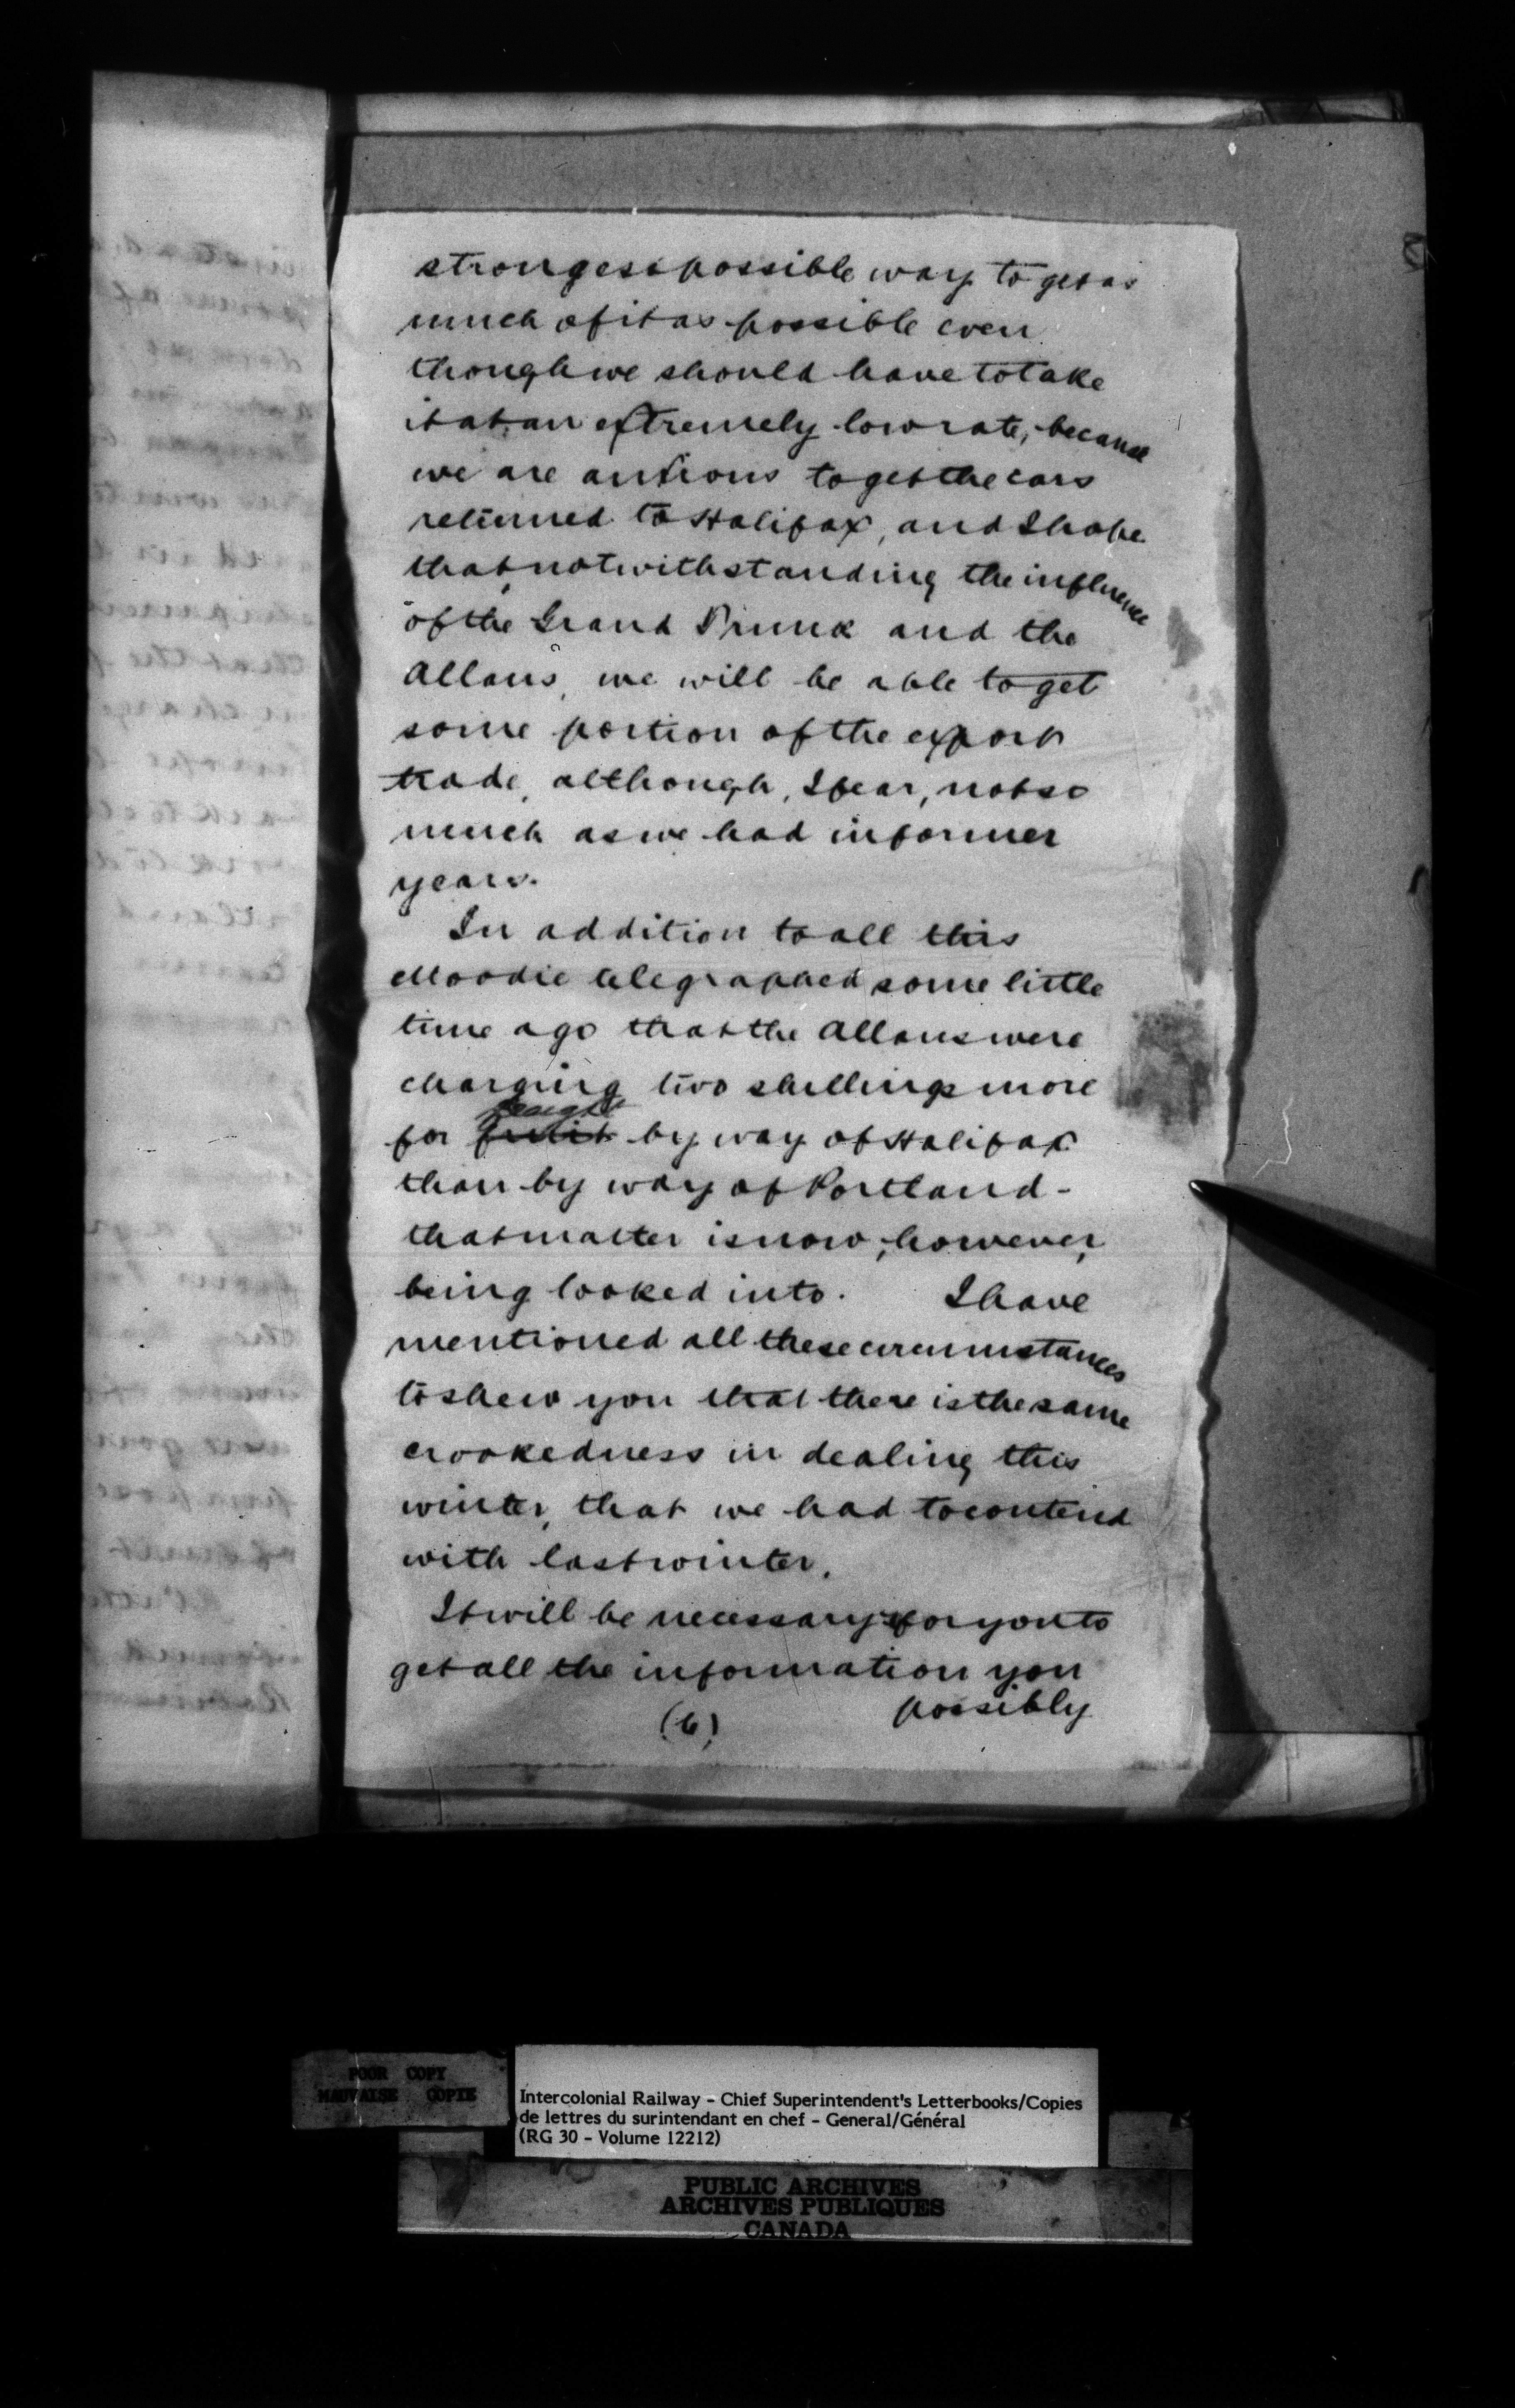 strongest possible way to get as
much of it as possible even
though we should have to take
it at an extremely low rate, because
we are anxious to get the cars
returned to Halifax, and I hope
that notwithstanding the influence
of the Grand Trunk and the
Allans, we will be able to get
some portion of the export
trade, although, I fear, not so
much as we had in former
years.
In addition to all this
Moodie telegraphed some little
time ago that the Allans were
charging two shillings more
freight
for fruit by way of Halifax
than by way of Portland -
that matter is now, however,
being looked into. I have
mentioned all these circumstances
to shew you that there is the same
crookedness in dealing this
winter, that we had to contend
with last winter.
It will be necessary for you to
get all the information you
possibly
(6)
POOR COPY
MAUVAISE COPIE
Intercolonial Railway - Chief Superintendent's Letterbooks/Copies
de lettres du surintendant en chef - General/Général
(RG 30 - Volume 12212)
PUBLIC ARCHIVES
ARCHIVES PUBLIQUES
CANADA